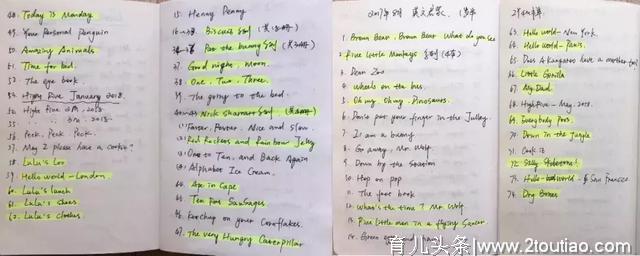 48. Today is Monday
49. Your Personal Penguin
50. Amazing Animals
51. Time for bed.
52. The eye book.
53. High Five January 2018.
54. High Five 2018.
55. 2018.
56. Peck. Peck. Peck.
57. May I please have a cookie?
58. Lulu's Loo
59. Hello world - London.
60. Lulu's lunch
61. Lulu's shoes
62. Lulu's clothes
15. Henny Penny
Biscuit
Poo the bunny
37. Good night, Moon.
38. One. Two. Three.
39. The going to bed.
Nick Sharratt
Faster, Foster. Nice and Slow.
Red Rockers and Rainbow Jelly
One to Ten. and Back Again
Alphabet Ice Cream.
44. Ape in Cape
45. Ten Fat Sausages
46. Ketchup on your Cornflakes.
47. The very Hungry Caterpillar
2017年8月 英文启蒙.
1. Brown Bear, Brown Bear. What do you see
2. Five Little Monkeys
3. Dear Zoo
4. wheels on the bus.
5. Oh my. Oh my. Dinosaurs.
6. Don't put your finger in the Jelly.
7. I am a bunny
8. Go away. Mr. Wolf.
9. Down by the station
10. Hop on pop
11. The foot book
12. What's the time? Mr. Wolf
13. Five little men in a flying Saucer
14. Green eggs and
63. Hello world - New York.
64. Hello world - Paris.
65. Does A Kangaroo have a mother too?
66. Little Gorilla
67. My Dad.
68. High Five - May. 2018.
69. Everybody Poos.
70. Down in the jungle
71. Cook it
72. Silly
73. Hello world - San Francisco
74. Dog Bones
育儿头条@www.2toutiao.com